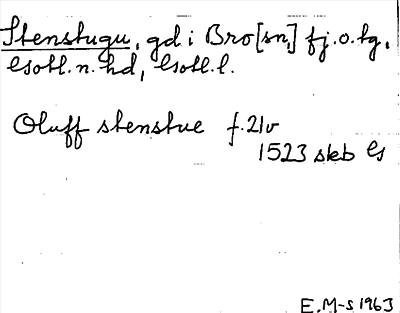 Stenstugu, gd i Bro[sn,] fj.o.tg,
Gotl.n.hd, Gotl.l.
Oluff stenstue f.21v
1523 skb Gs
E.M-s 1963